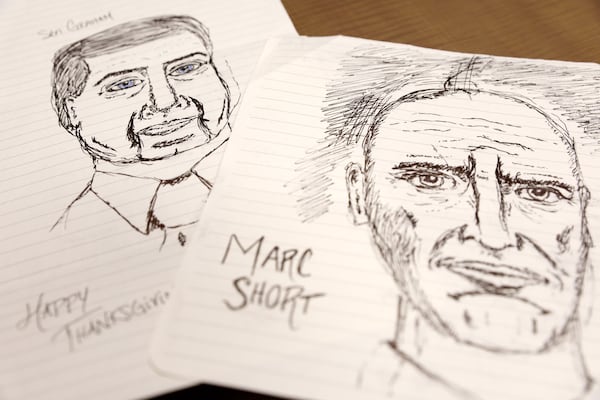 Sen Graham
Happy
Thanksgiving
Marc
Short